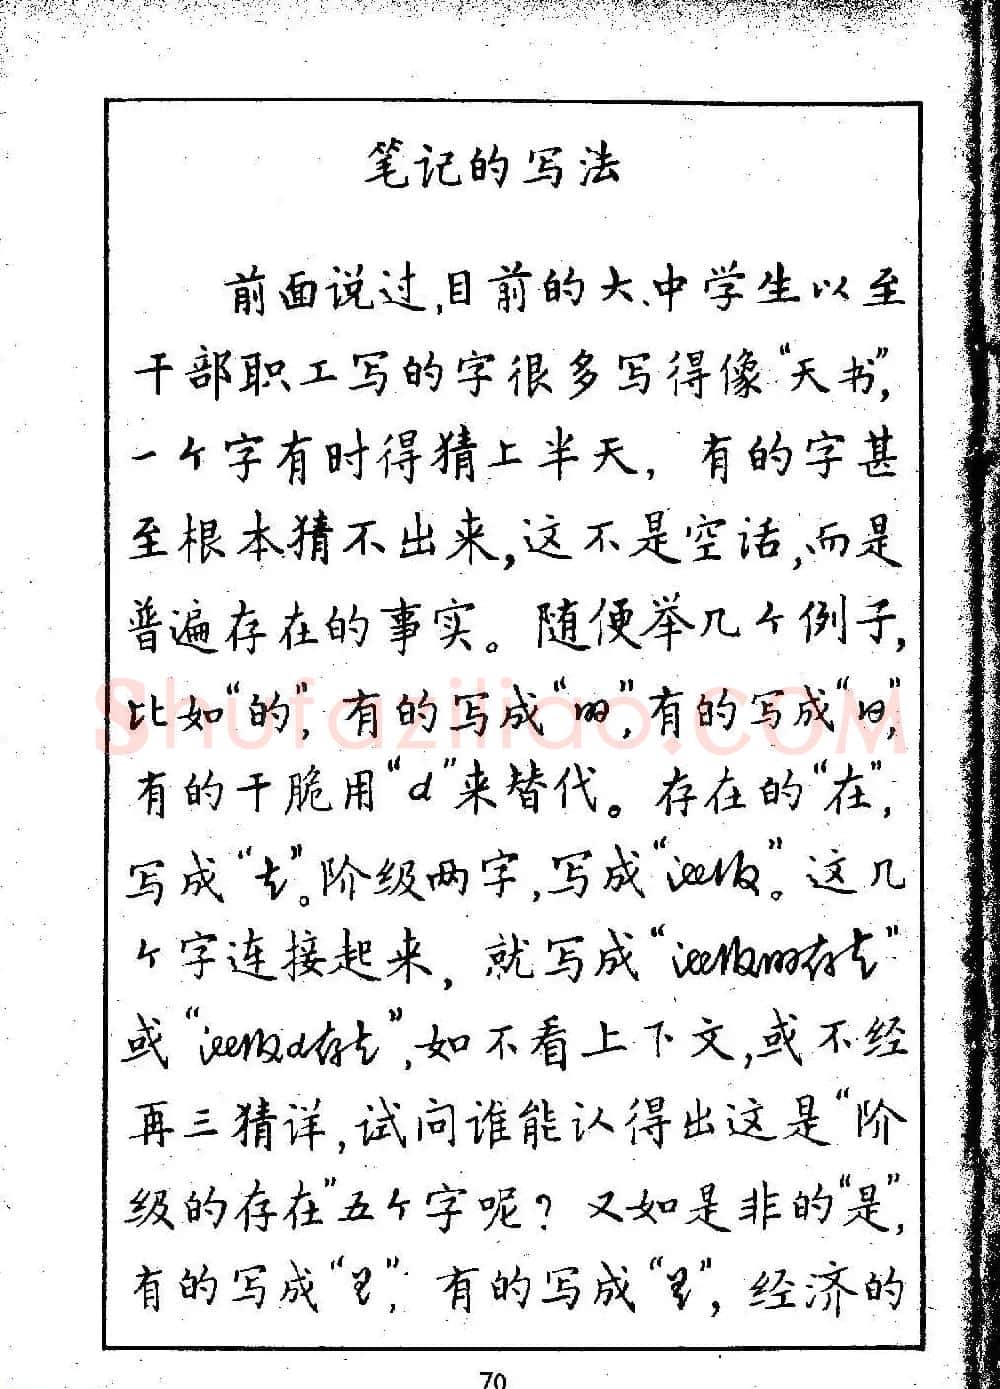 笔记的写法
前面说过,目前的大、中学生以至
干部职工写的字很多写得像“天书”,
一个字有时得猜上半天, 有的字甚
至根本猜不出来,这不是空话,而是
普遍存在的事实。随便举几个例子,
比如“的”, 有的写成“”,有的写成“”,
有的干脆用“d”来替代。存在的“在”,
写成“”。阶级两字,写成“”。这几
个字连接起来, 就写成“”
或“”,如不看上下文,或不经
再三猜详,试问谁能认得出这是“阶
级的存在”五个字呢? 又如是非的“是”,
有的写成“”, 有的写成“”, 经济的
70
Shufaziliao.COM